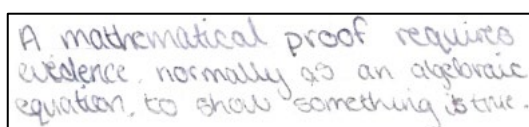 A mathematical proof requires
evidence, normally as an algebraic
equation, to show something is true.